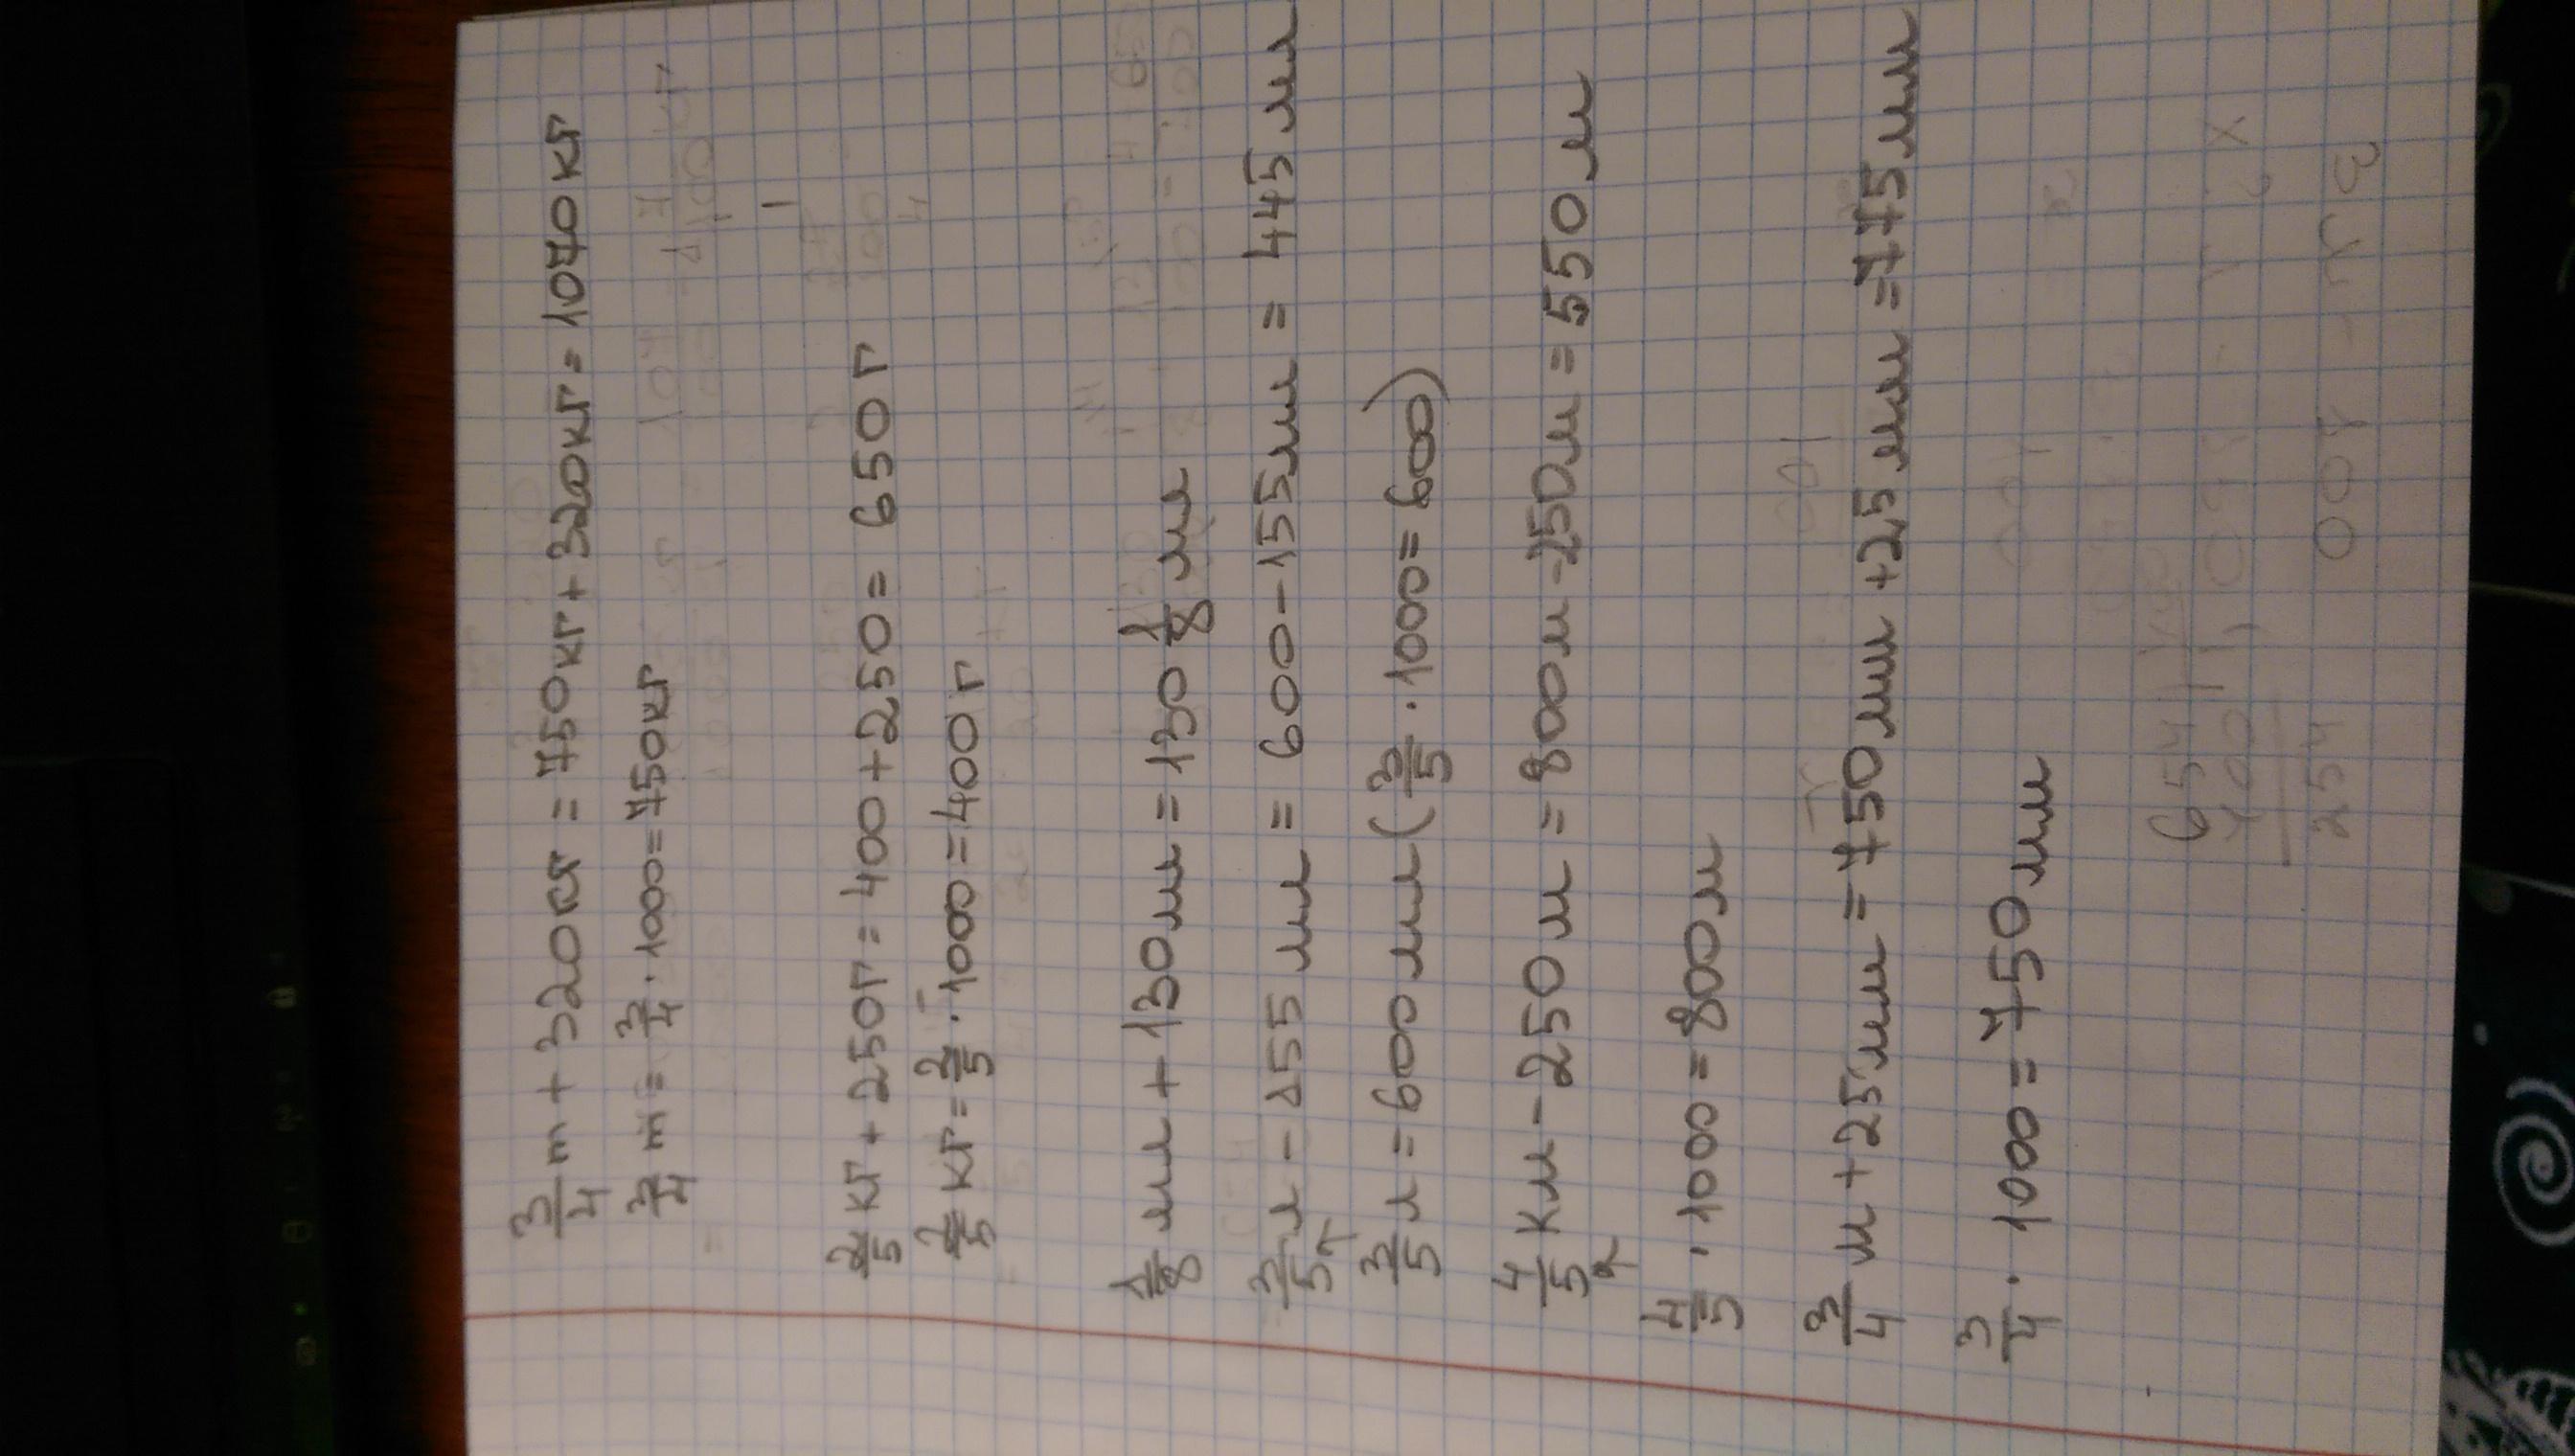 3/4 т + 320кг = 750кг + 320кг = 1070кг
3/4 т = 3/4 · 1000 = 750кг
2/5 кг + 250г = 400 + 250 = 650г
2/5 кг = 2/5 · 1000 = 400г
1/8 мм + 130мм = 130 1/8 мм
3/5 м - 155 мм = 600 - 155мм = 445 мм
3/5 м = 600 мм (3/5 · 1000 = 600)
4/5 км - 250м = 800м - 250м = 550м
4/5 · 1000 = 800м
3/4 м + 25мм = 750мм + 25мм = 775мм
3/4 · 1000 = 750мм